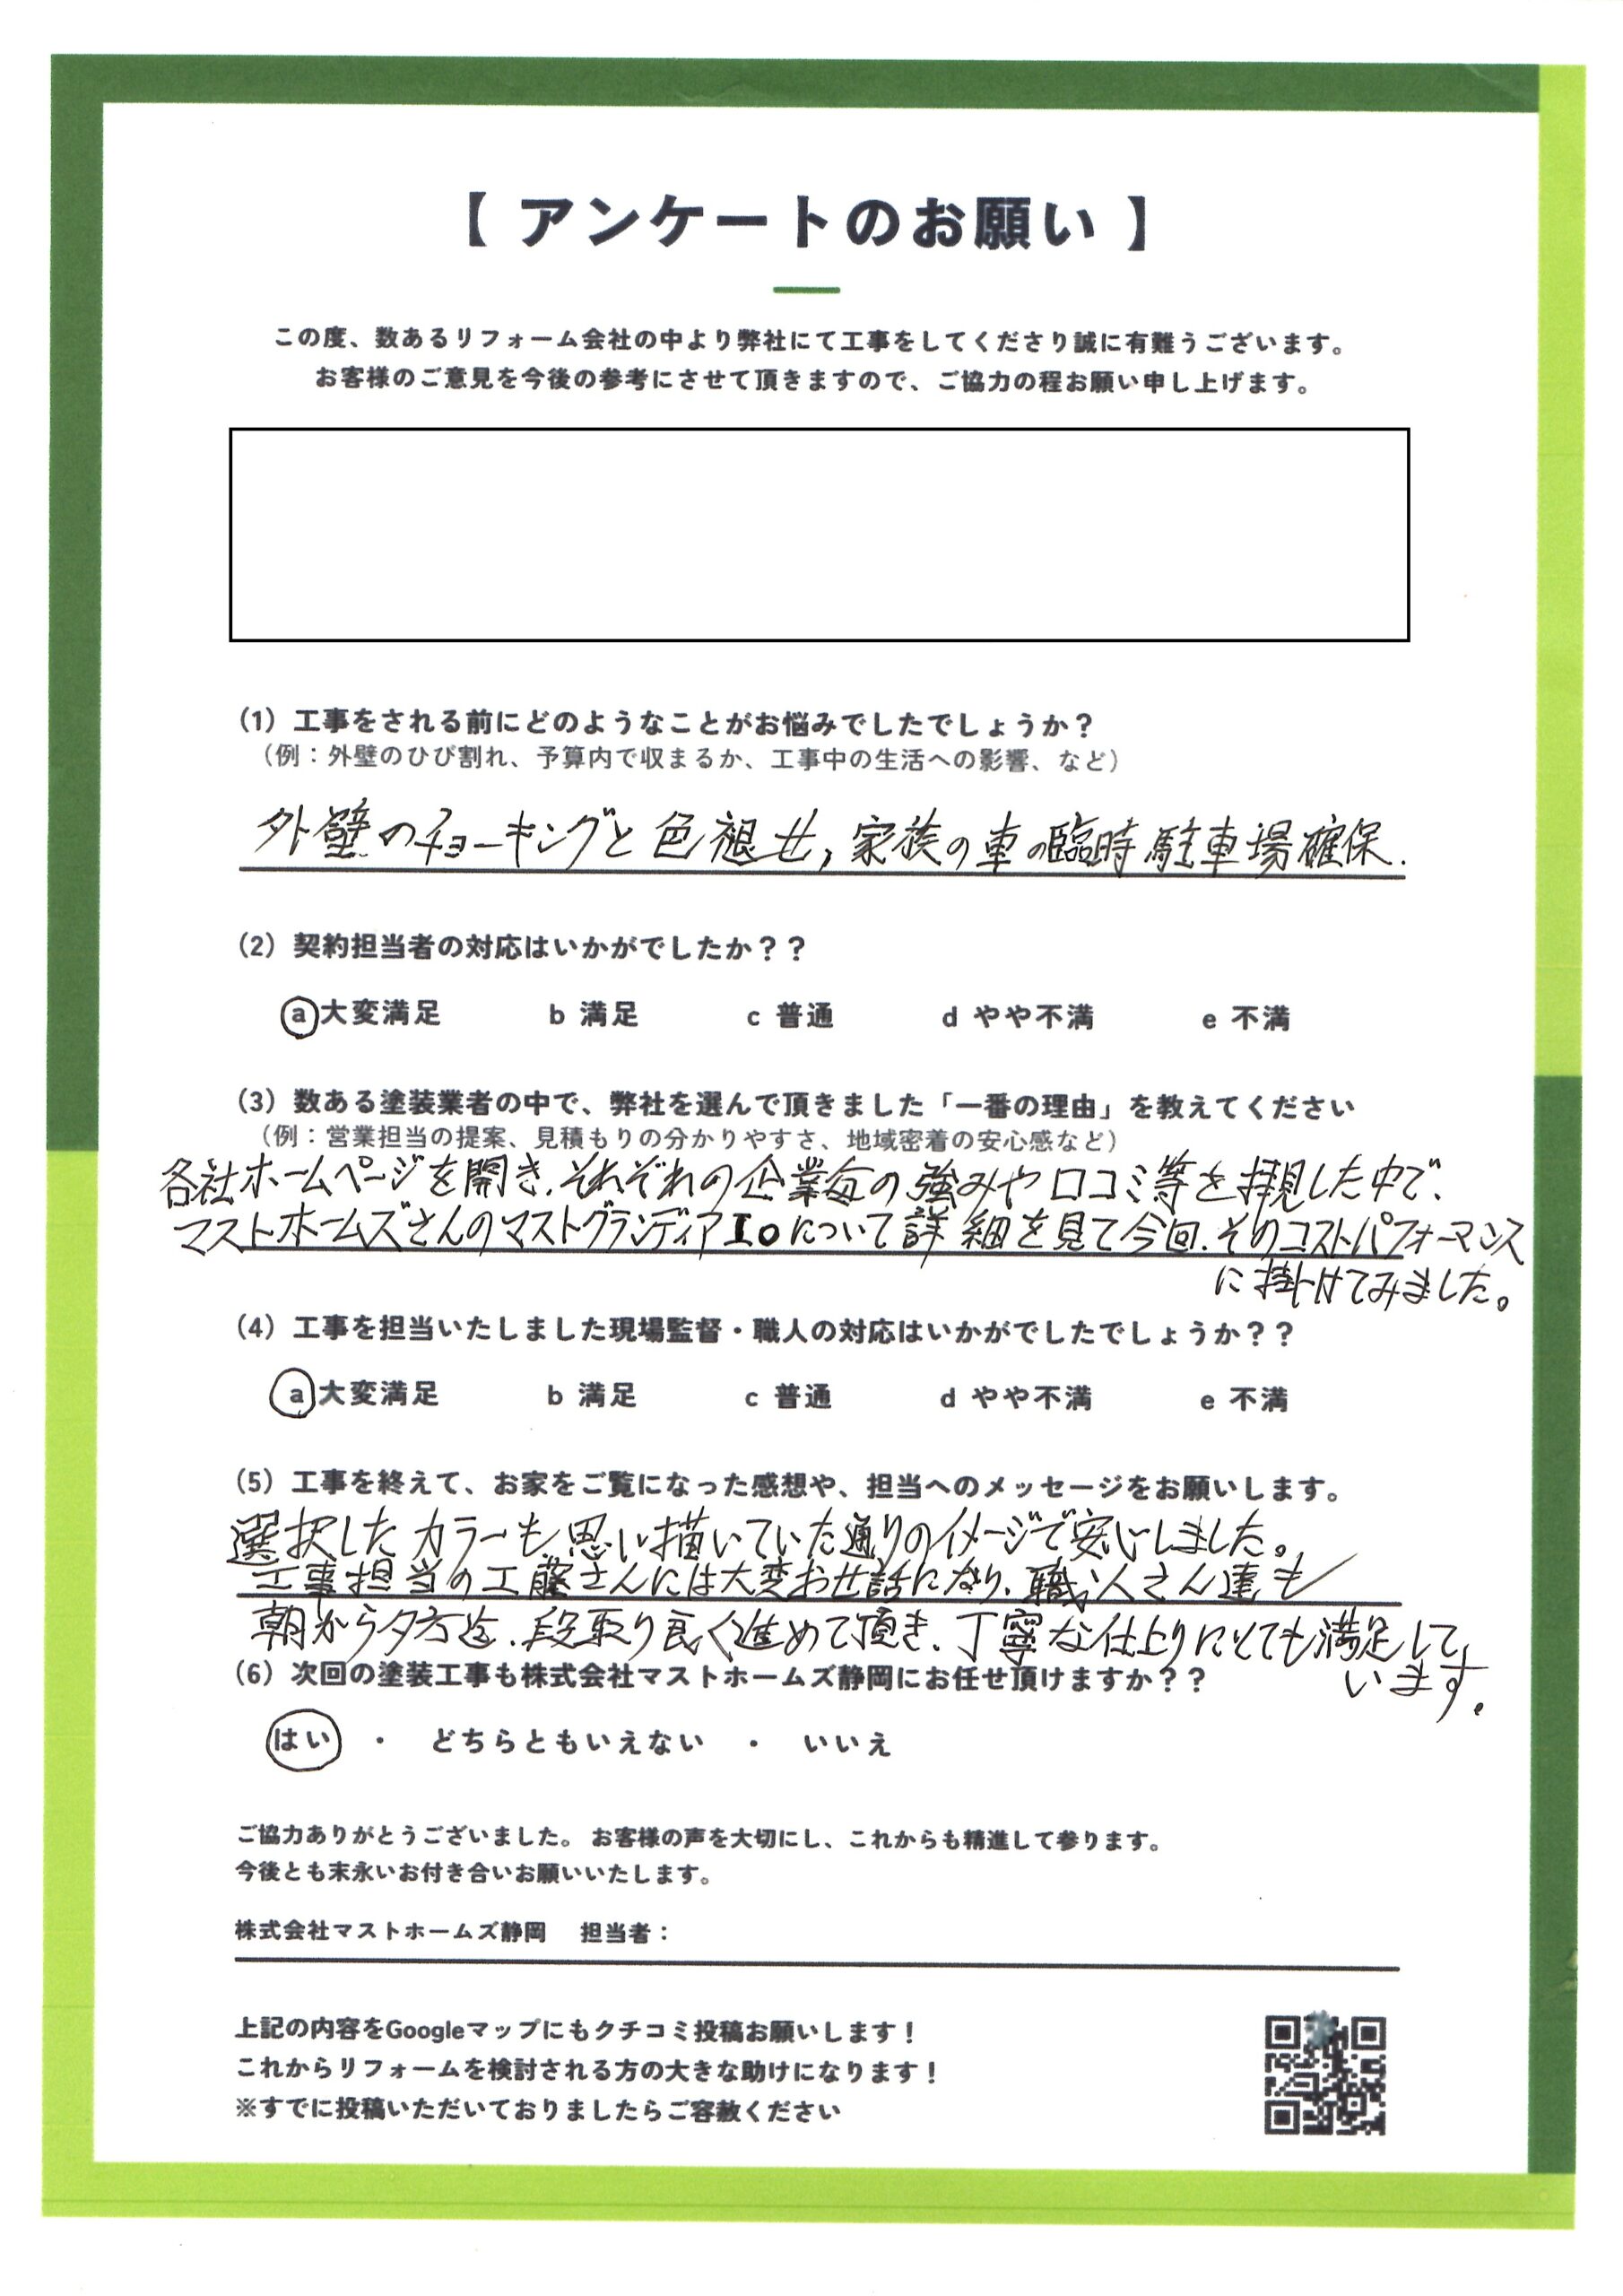 【 アンケートのお願い 】
この度、数あるリフォーム会社の中より弊社にて工事をしてくださり誠に有難うございます。
お客様のご意見を今後の参考にさせて頂きますので、ご協力の程お願い申し上げます。
(1) 工事をされる前にどのようなことがお悩みでしたでしょうか？
(例：外壁のひび割れ、予算内で収まるか、工事中の生活への影響、など)
外壁のチョーキングと色褪せ,家族の車の臨時駐車場確保.
(2) 契約担当者の対応はいかがでしたか？？
a 大変満足 b 満足 c 普通 d やや不満 e 不満
(3) 数ある塗装業者の中で、弊社を選んで頂きました「一番の理由」を教えてください
(例：営業担当の提案、見積もりの分かりやすさ、地域密着の安心感など)
各社ホームページを開き、それぞれの企業毎の強みや口コミ等を拝見した中で、
マストホームズさんのマストグランディアIOについて詳細を見て今回、そのコストパフォーマンス
に掛けてみました。
(4) 工事を担当いたしました現場監督・職人の対応はいかがでしたでしょうか？？
a 大変満足 b 満足 c 普通 d やや不満 e 不満
(5) 工事を終えて、お家をご覧になった感想や、担当へのメッセージをお願いします。
選択したカラーも思い描いていた通りのイメージで安心しました。
工事担当の工藤さんには大変お世話になり、職人さん達も
朝から夕方迄、段取り良く進めて頂き、丁寧な仕上りにとても満足して
います。
(6) 次回の塗装工事も株式会社マストホームズ静岡にお任せ頂けますか？？
はい ・ どちらともいえない ・ いいえ
ご協力ありがとうございました。 お客様の声を大切にし、これからも精進して参ります。
今後とも末永いお付き合いお願いいたします。
株式会社マストホームズ静岡 担当者：
上記の内容をGoogleマップにもクチコミ投稿お願いします！
これからリフォームを検討される方の大きな助けになります！
※すでに投稿いただいておりましたらご容赦ください